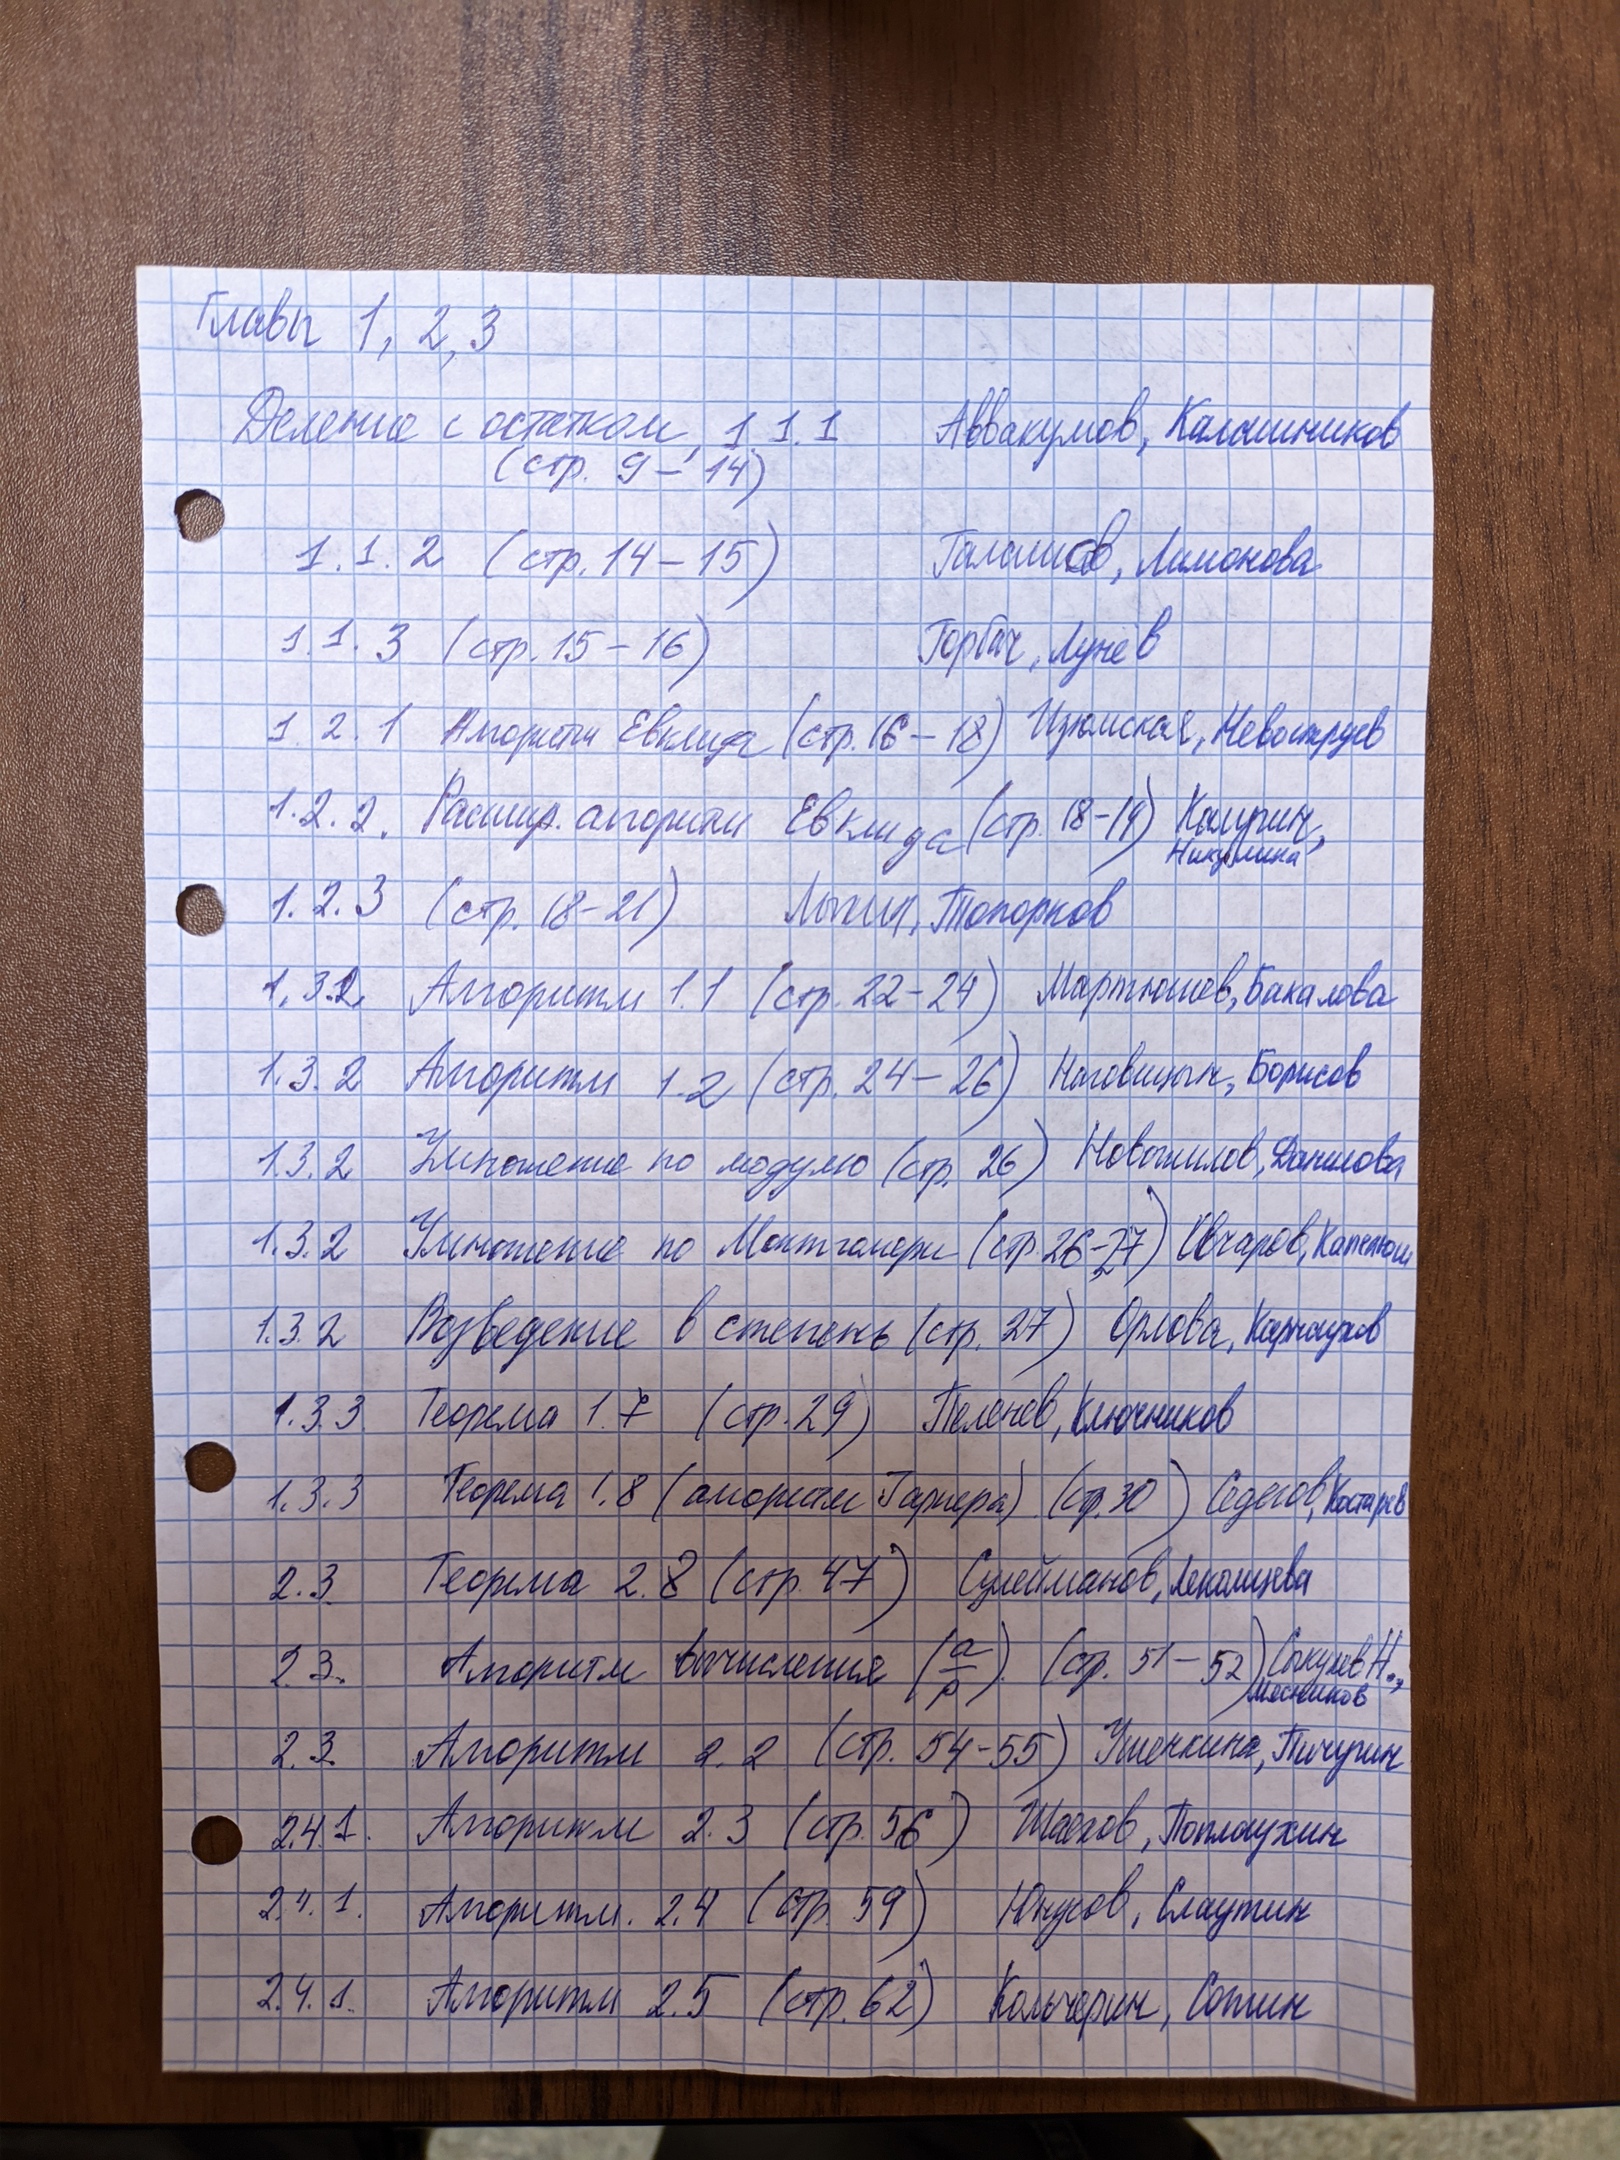 Главы 1, 2, 3
Деление с остатком, 1.1.1 Аввакумов, Калашников
(стр. 9 – 14)
1.1.2 (стр. 14 – 15) Галашов, Лимонова
1.1.3 (стр. 15 – 16) Горбач, Лунёв
1.2.1 Алгоритм Евклида (стр. 16 – 18) Изюмская, Невоструев
1.2.2. Расшир. алгоритм Евклида (стр. 18 – 19)
Никулина
1.2.3 (стр. 18 – 21) Топорков
1.3.2. Алгоритм 1.1 (стр. 22 – 24) Мартюшев, Бакалова
1.3.2 Алгоритм 1.2 (стр. 24 – 26) Наговицын, Борисов
1.3.2 Умножение по модулю (стр. 26) Новожилов, Данилова
1.3.2 Умножение по Монтгомери (стр. 26 – 27) Овчаров,
1.3.2 Возведение в степень (стр. 27) Орлова, Карнаухов
1.3.3 Теорема 1.7 (стр. 29) Пеленев, Ключников
1.3.3 Теорема 1.8 (алгоритм Гарнера) (стр. 30) Седегов, Костарев
2.3. Теорема 2.8 (стр. 47) Сулейманов, Лекомцева
2.3. Алгоритм вычисления (a/p). (стр. 51 – 52) Сыкулев Н.,
Мясников
2.3. Алгоритм 2.2 (стр. 54 – 55) Ушенкина, Пичугин
2.4.1. Алгоритм 2.3 (стр. 56) Шаехов, Поплаухин
2.4.1. Алгоритм. 2.4 (стр. 59) Юнусов, Слаутин
2.4.1. Алгоритм 2.5 (стр. 62) Кольчерин, Сотин